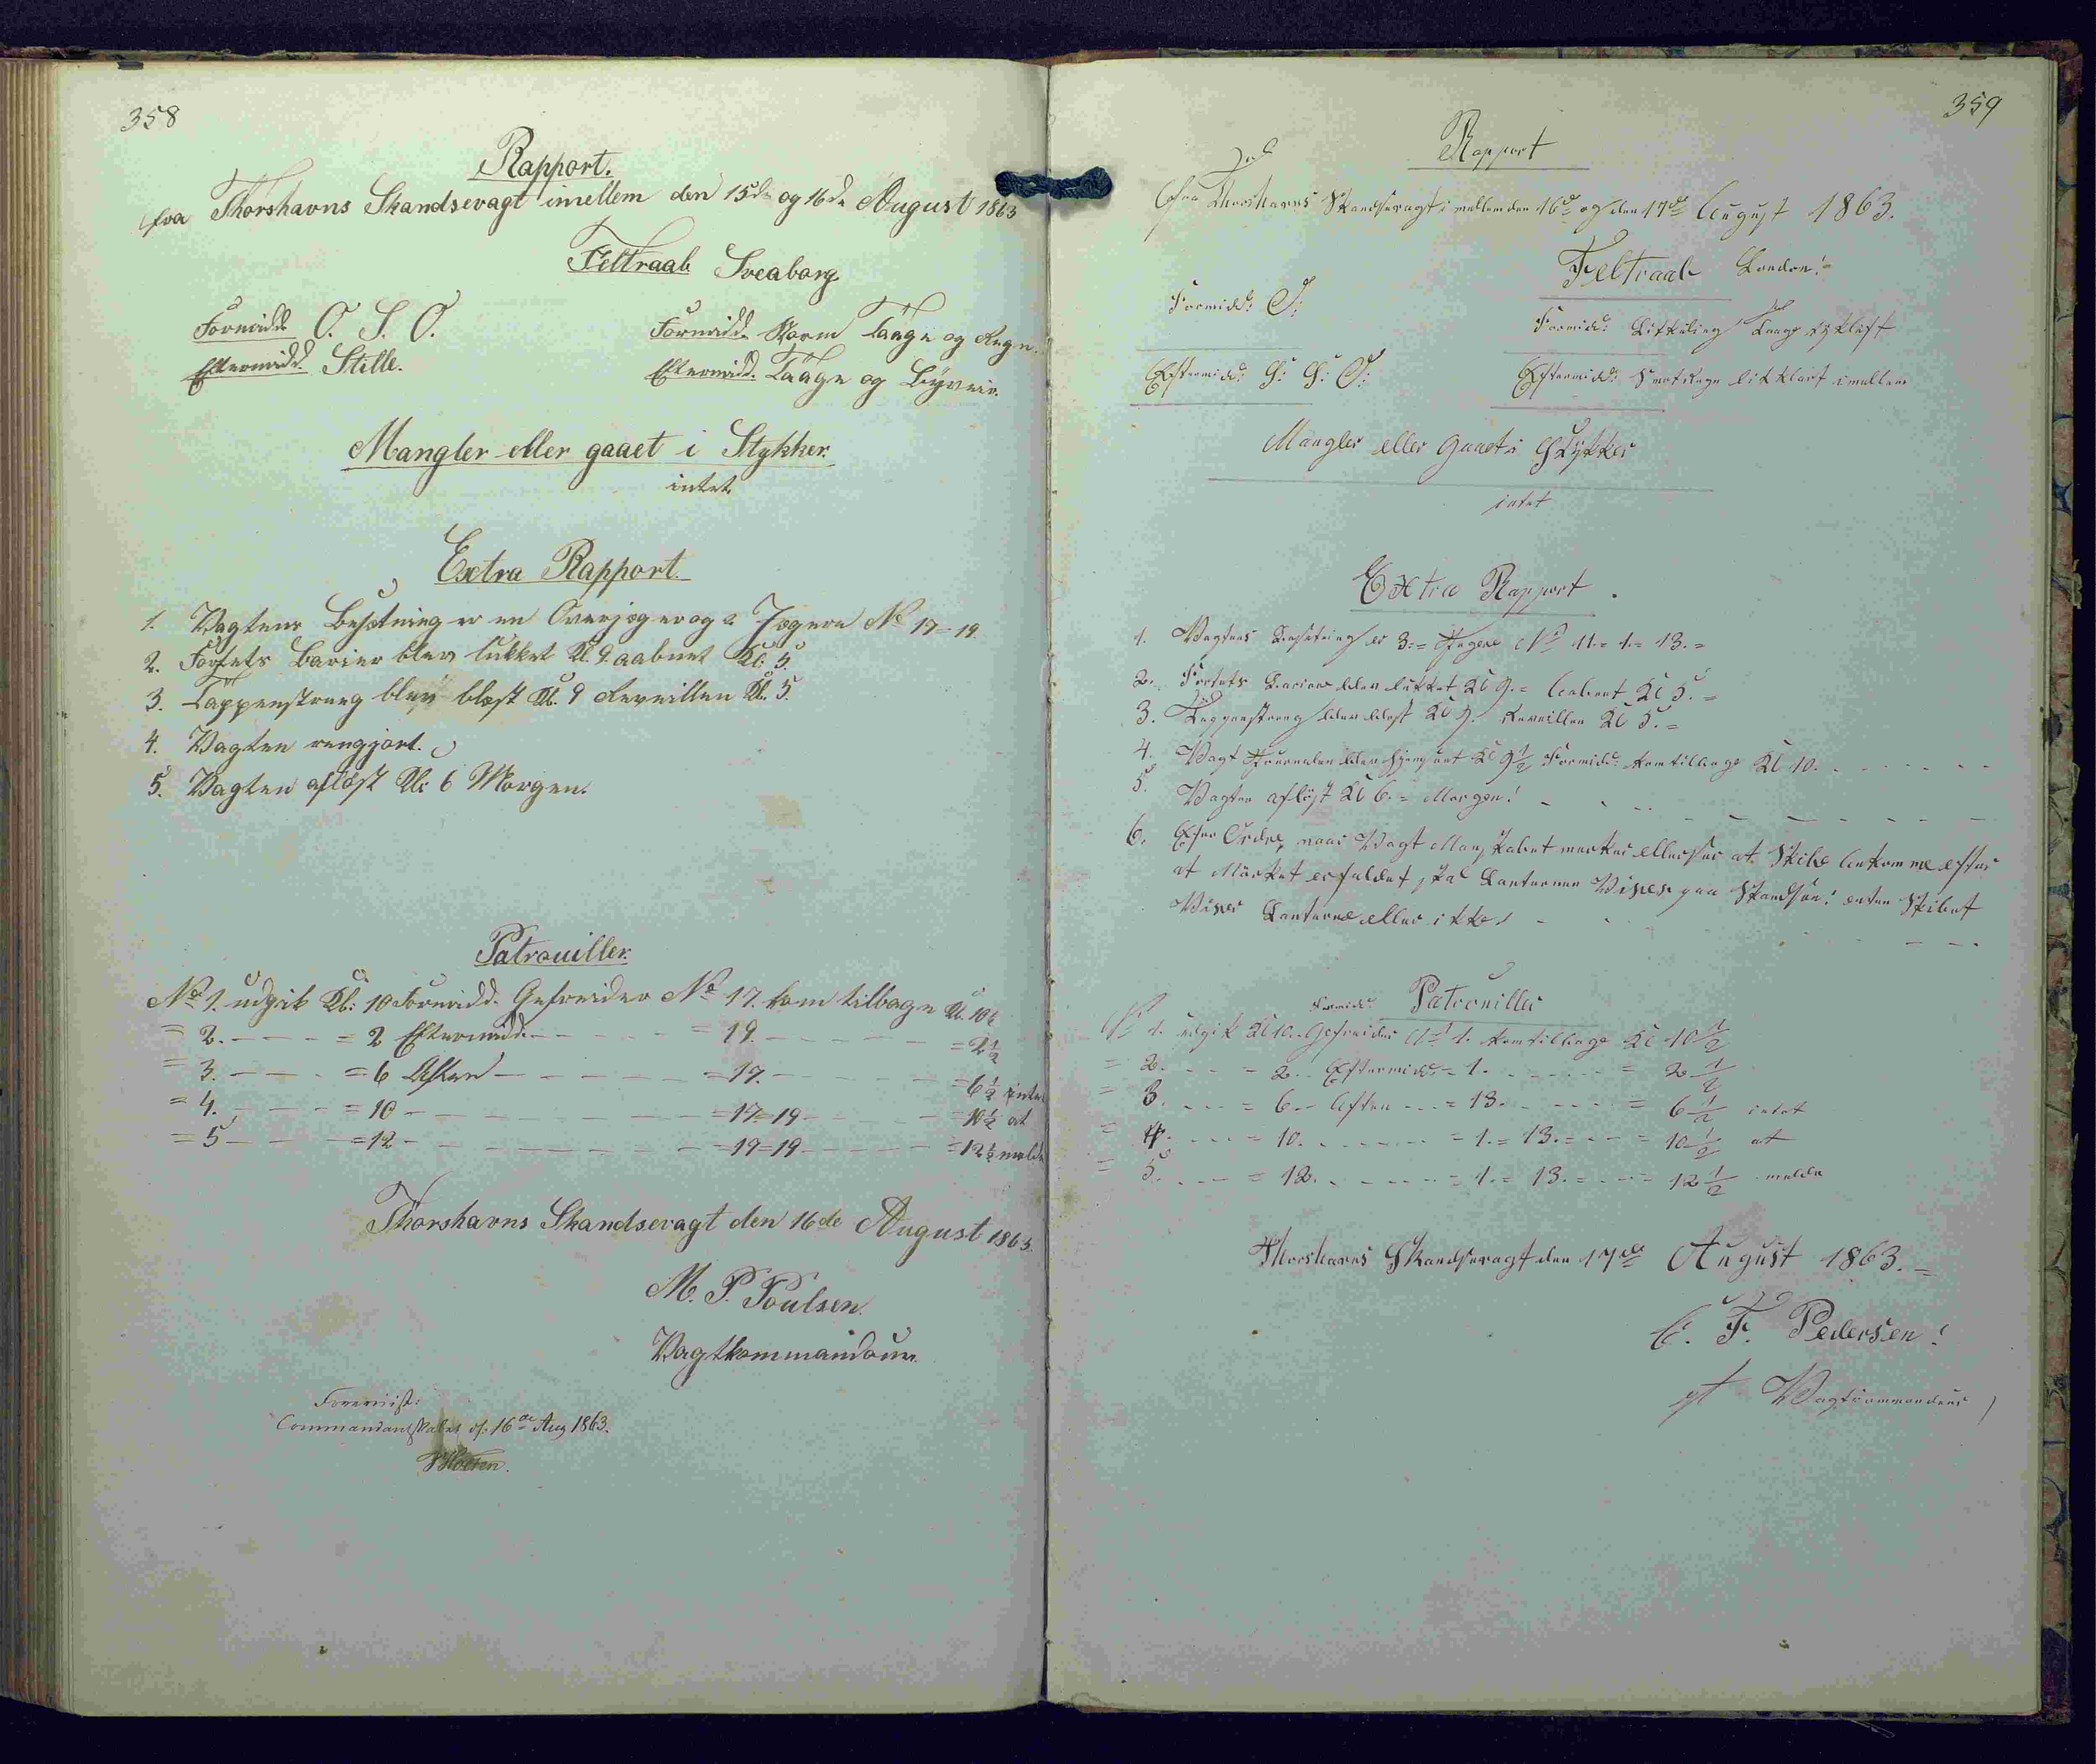 358
Rapport.
fra Thorshavns Skandsevagt imellem den 15de og 16de August 1863
Feltraab Sveaborg
Formidd. O. S. O.
Formidd. Storm Taage og Regn.
Eftermidd. Stille.
Eftermidd. Taage og Byveir.
Mangler eller gaaet i Stykker.
intet
Extra Rapport.
1. Vagtens Besætning er en Overjæger og 2 Jægere No 17 = 19.
2. Fortets Barier blev lukket Kl. 9 aabnet Kl: 5.
3. Tappenstreng blev blæst Kl. 9 Reveillen Kl. 5.
4. Vagten rengjort.
5. Vagten afløst Kl: 6 Morgen.
Patrouiller.
No 1. udgik Kl: 10 Formidd. Gefreider No 17. kom tilbage Kl. 10½
= 2. - - - = 2 Eftermidd. - - - = 19. - - - = 2½
= 3. - - - = 6 Aften - - - = 17. - - - = 6½ intet
= 4. - - - = 10 - - - = 17 = 19 - - - = 10½ at
= 5 - - - = 12 - - - = 17 = 19 - - - = 12½ melde
Thorshavns Skandsevagt den 16de August 1863.
M. P. Poulsen.
Vagtkommandeur.
Foreviist:
Commandantskabet d. 16de Aug 1863.
359
Rapport
Fra Thorshavns Skandsevagt imellem den 16de og den 17de August 1863.
Feltraab London!
Formidd: O:
Formidd: Taage
Eftermidd: S: S: O:
Eftermidd: Regn imellem
Mangler eller Gaaet i Stykker
intet
Extra Rapport.
1. Vagtens Besætning er 3 = Jægere No 11. = 1. = 13. =
2. Fortets Barier blev lukket Kl 9. = Aabnet Kl 5. =
3. Tappenstreng blev blæst Kl 9. Reveillen Kl 5. =
4. Vagt Journalen blev Kl 9½ Formidd: kom tilbage Kl 10. - - -
5. Vagten afløst Kl 6. = Morgen! - - -
6. Efter Ordre, naar Vagt Manskabet mærker eller ser at Skibe Ankomme efter
at Mørket er faldet, skal Lanternen Vises paa Skandsen! enten Skibet
Viser Lanterne eller ikke! - - -
Patrouiller
No 1. udgik Kl 10. Formidd: Gefreider No 1. kom tilbage Kl 10½
= 2. - - - = 2. Eftermidd: = 1. - - - = 2½
= 3. - - - = 6. Aften - - - = 13. - - - = 6½ intet
= 4. - - - = 10. - - - = 1. = 13. = - - - = 10½ at
= 5. - - - = 12. - - - = 1. = 13. = - - - = 12½ melde
Thorshavns Skandsevagt den 17de August 1863. =
C. F. Pedersen!
Vagtcommandeur